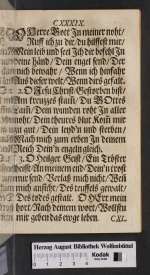 CXXXIX.
O Herre Gott In meiner noht/
Ruff ich zu dir/ du hilffest mir:
Mein leib und seel Ich dir befehl In
deine händ/ Dein engel send/ Der
mich bewahr/ Wenn ich hinfahr
Aus dieser welt/ Wenn dirs gefält.
2. O Jesu Christ Gestorben bist/
Am creutzes stam/ Du Gottes
Lam/ Dein wunden roht In aller
noht/ Dein theures blut Komm mir
zu gut/ Dein leydn und sterben/
Mach mich zum erben In deinem
Reich Dein'n engeln gleich.
3. O Heiliger Geist/ Ein Tröster
heist/ An meinem end Dein'n trost
mir send Verlaß mich nicht/ Weñ
mich anficht/ Des teuffels gewalt/
Des todes gestalt. O HErr mein
hort/ Nach deinem wort/ Wollstu
mir geben das ewge leben.
CXL.
Herzog August Bibliothek Wolfenbüttel
Kodak